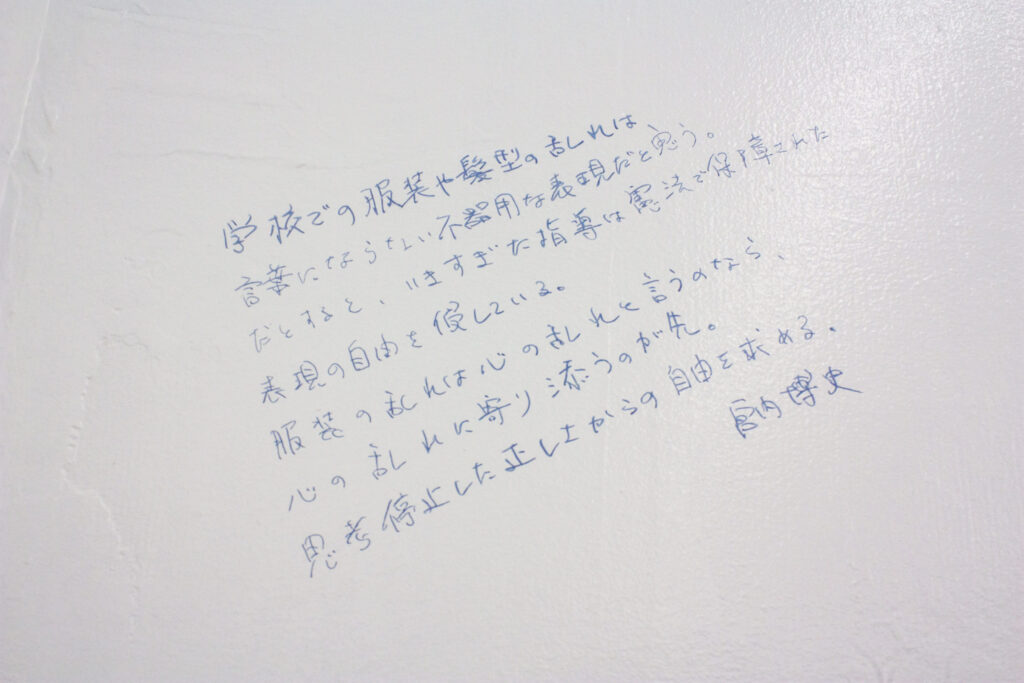 学校での服装や髪型の乱れは、
言葉にならない不器用な表現だと思う。
だとすると、いきすぎた指導は憲法で保障された
表現の自由を侵している。
服装の乱れは心の乱れと言うのなら、
心の乱れに寄り添うのが先。
思考停止した正しさからの自由を求める。
宮内博史